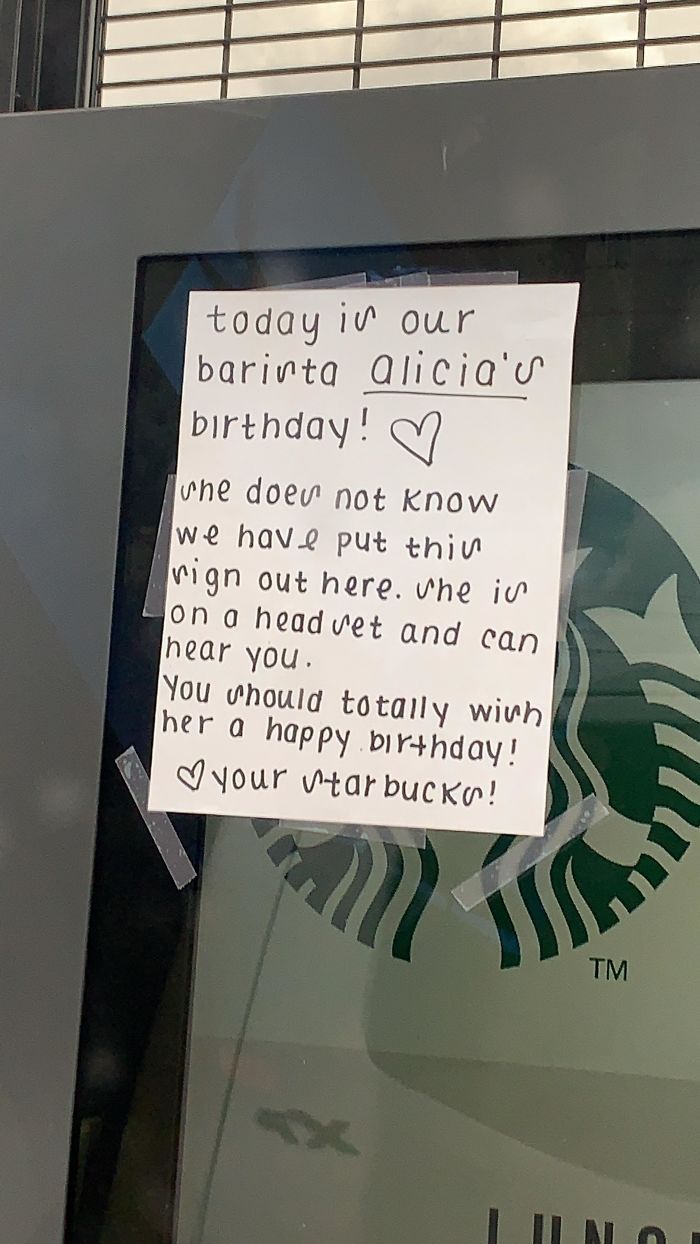 today is our
barista alicia's
birthday! ♡
she does not know
we have put this
sign out here. she is
on a headset and can
hear you.
You should totally wish
her a happy birthday!
♡ your starbucks!
TM